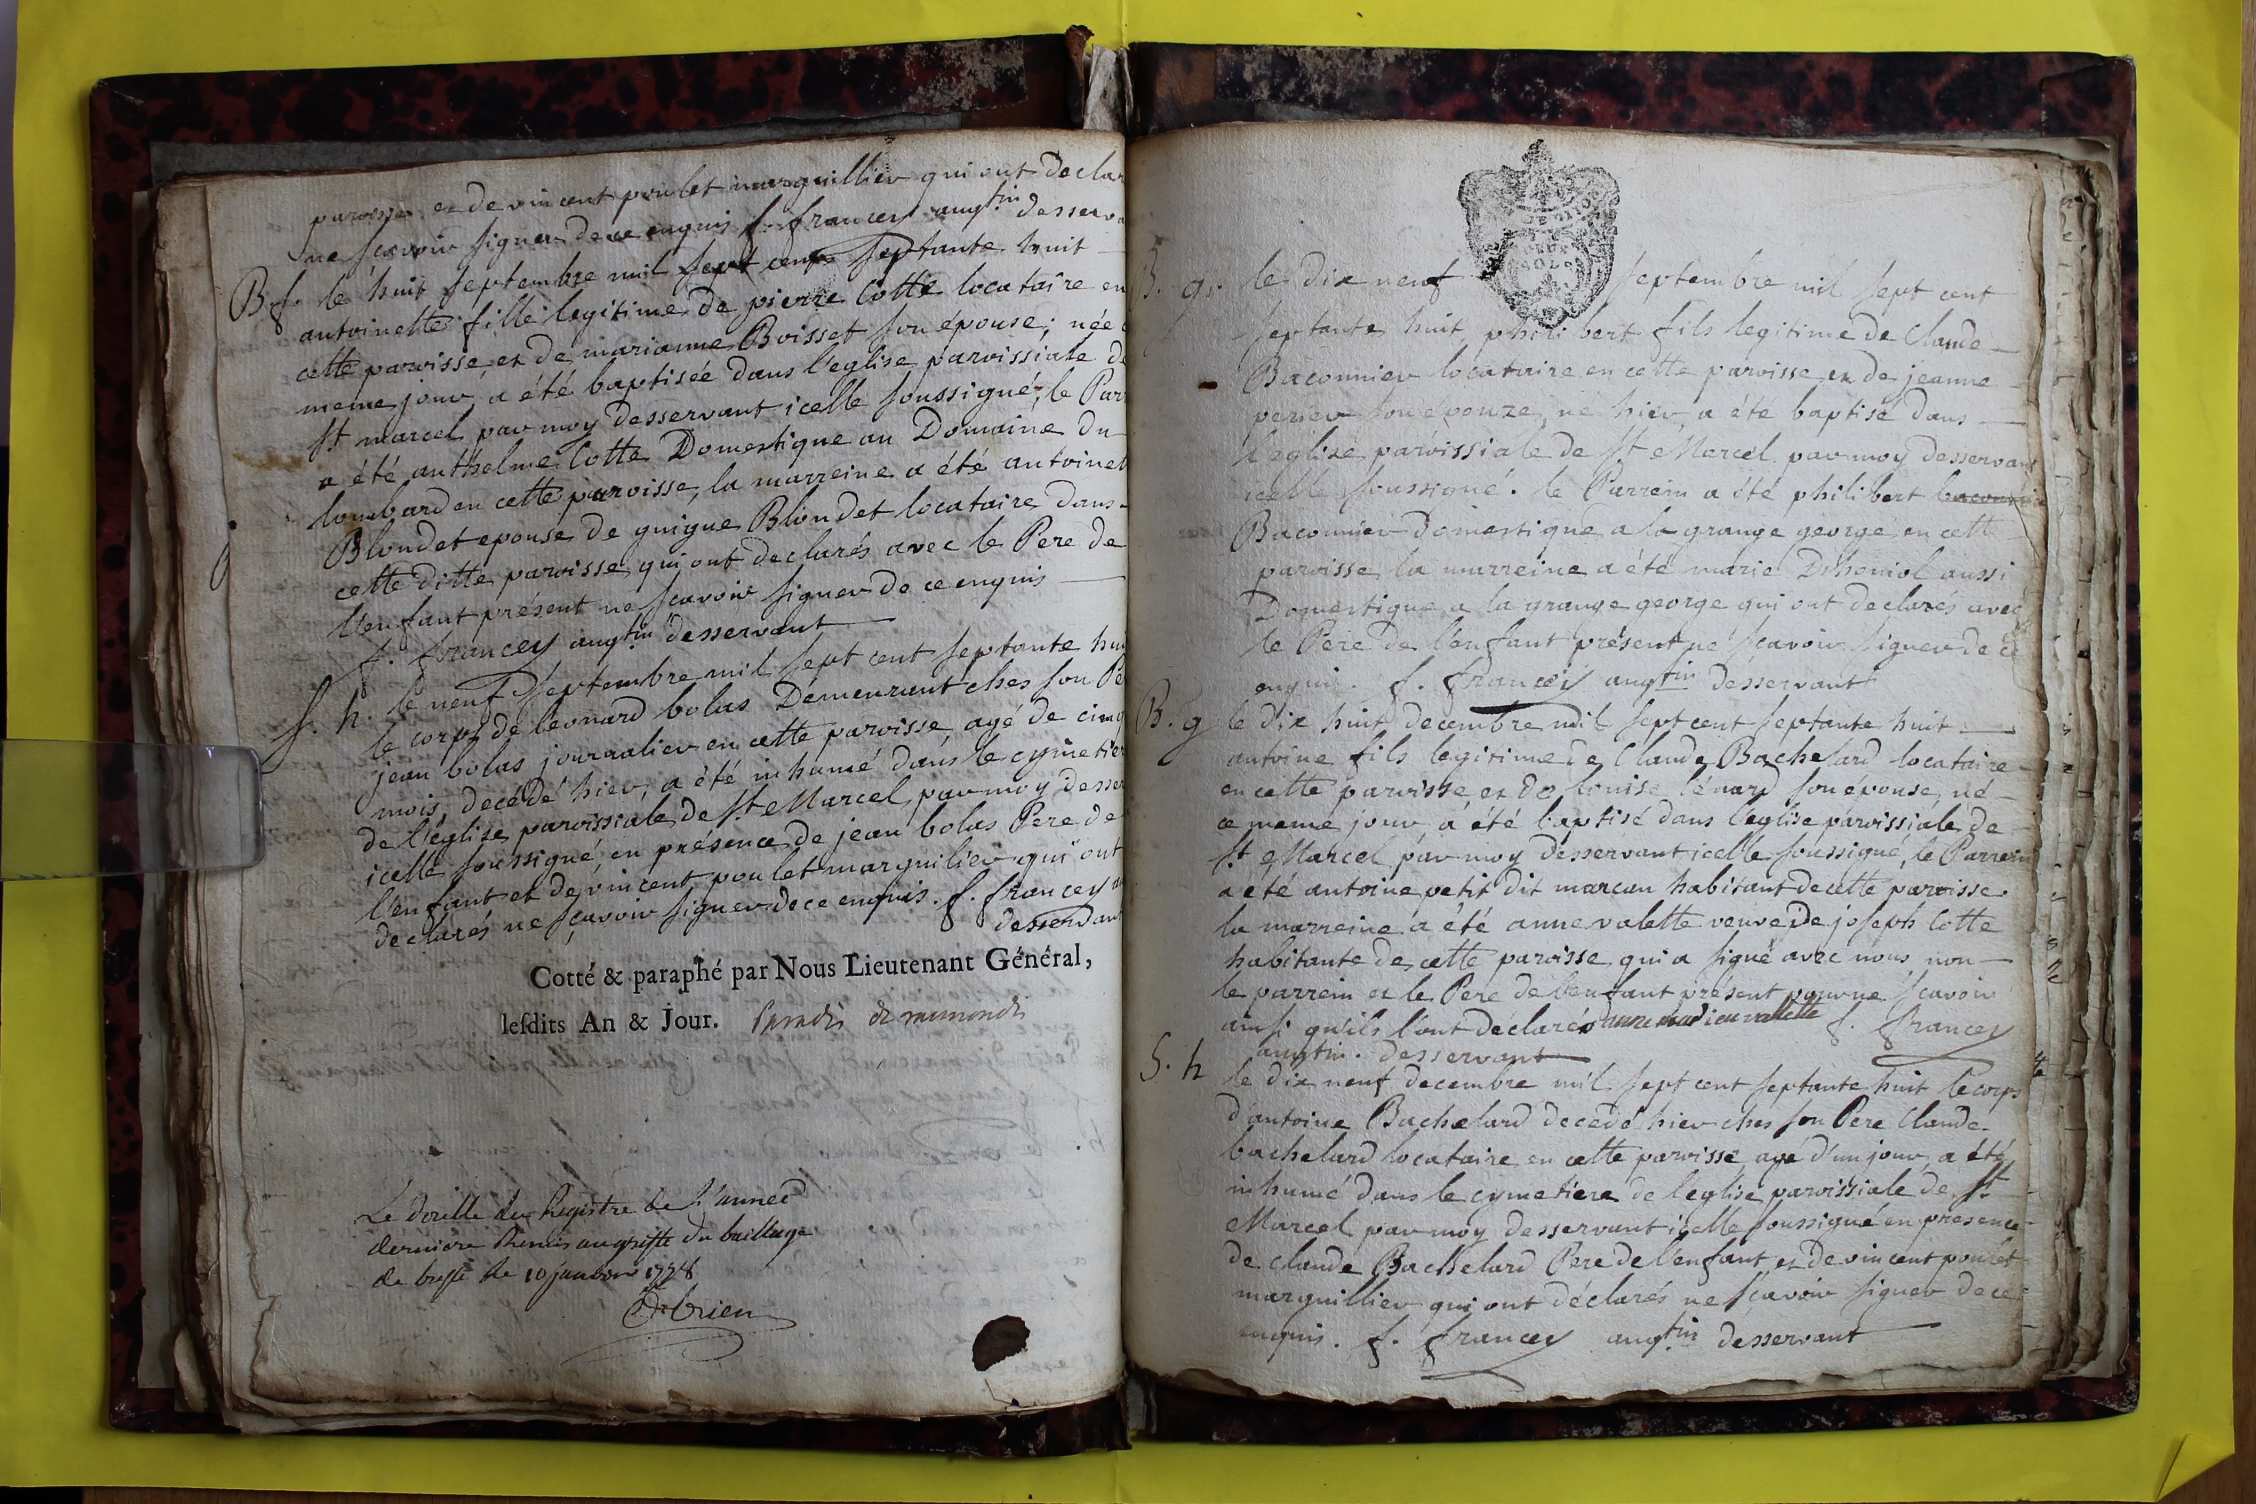 paroisse et de vincent poulet marguillier qui ont declar
ne sçavoir signer de ce enquis f. francey augtin desserva
B f. le huit septembre mil sept cent septante huit
antoinette fille legitime de pierre Cotte locataire en
cette paroisse et de marianne Boisset son épouse, née c
meme jour, a été baptisée dans l'eglise paroissiale de
St marcel par moy desservant icelle soussigné, le Parr
a été anthelme Cotte Domestique au Domaine du
lombard en cette paroisse, la marreine a été antoinet
Blondet epouse de guigue Blondet locataire dans
cette ditte paroisse qui ont declarés avec le Pere de
l'enfant présent ne sçavoir signer de ce enquis
f. francey augtin desservant
S. h. le neuf septembre mil sept cent septante hui
le corps de leonard bolas Demeurant ches son Pe
jean bolas journalier en cette paroisse agé de cinq
mois, decédé hier, a été inhumé dans le cymetier
de l'église paroissiale de St Marcel par moy desser
icelle soussigné en présence de jean bolas Pere de
l'enfant et de vincent poulet marguilier qui ont
declarés ne sçavoir signer de ce enquis. f. francey au
desservant
Cotté & paraphé par Nous Lieutenant Général,
lesdits An & Jour.
Le double du Registre de L'année
derniere Remis au greffe du bailliage
de bresse Le 10 janvier 1778
B. g. le dix neuf septembre mil sept cent
septante huit, philibert fils legitime de Claude
Baconnier locataire en cette paroisse et de jeanne
perier son épouze, ne hier, a été baptisé dans
l'église paroissiale de St Marcel par moy desservant
icelle soussigné. le Parrein a été philibert baconnie
Baconnier domestique a la grange george en cette
paroisse la marreine a été marie aussi
Domestique a la grange george qui ont declarés avec
le Pere de l'enfant présent ne sçavoir signer de ce
enquis. f. francey augtin desservant
B. g le dix huit decembre mil sept cent septante huit
antoine fils legitime de Claude Bachelard locataire
en cette paroisse et de louise lénard son épouse, né
ce meme jour, a été baptisé dans l'eglise paroissiale de
St Marcel par moy desservant icelle soussigné, le Parrein
a été antoine petit dit marcan habitant de cette paroisse
la marreine a été anne valette veuve de joseph Cotte
habitante de cette paroisse qui a signé avec nous, non
le parrein et le Pere de l'enfant présent pour ne sçavoir
ainsi qu'ils l'ont déclarés anne mathieu vallette f. francey
augtin. desservant
S. h le dix neuf decembre mil sept cent septante huit le corps
d'antoine Bachelard decedé hier ches son Pere Claude
bachelard locataire en cette paroisse, agé d'un jour, a été
inhumé dans le cymetiere de l'eglise paroissiale de St
Marcel par moy desservant icelle soussigné en presence
de claude Bachelard Pere de l'enfant et de vincent poulet
marguillier qui ont déclarés ne sçavoir signer de ce
enquis. f. francey augtin desservant